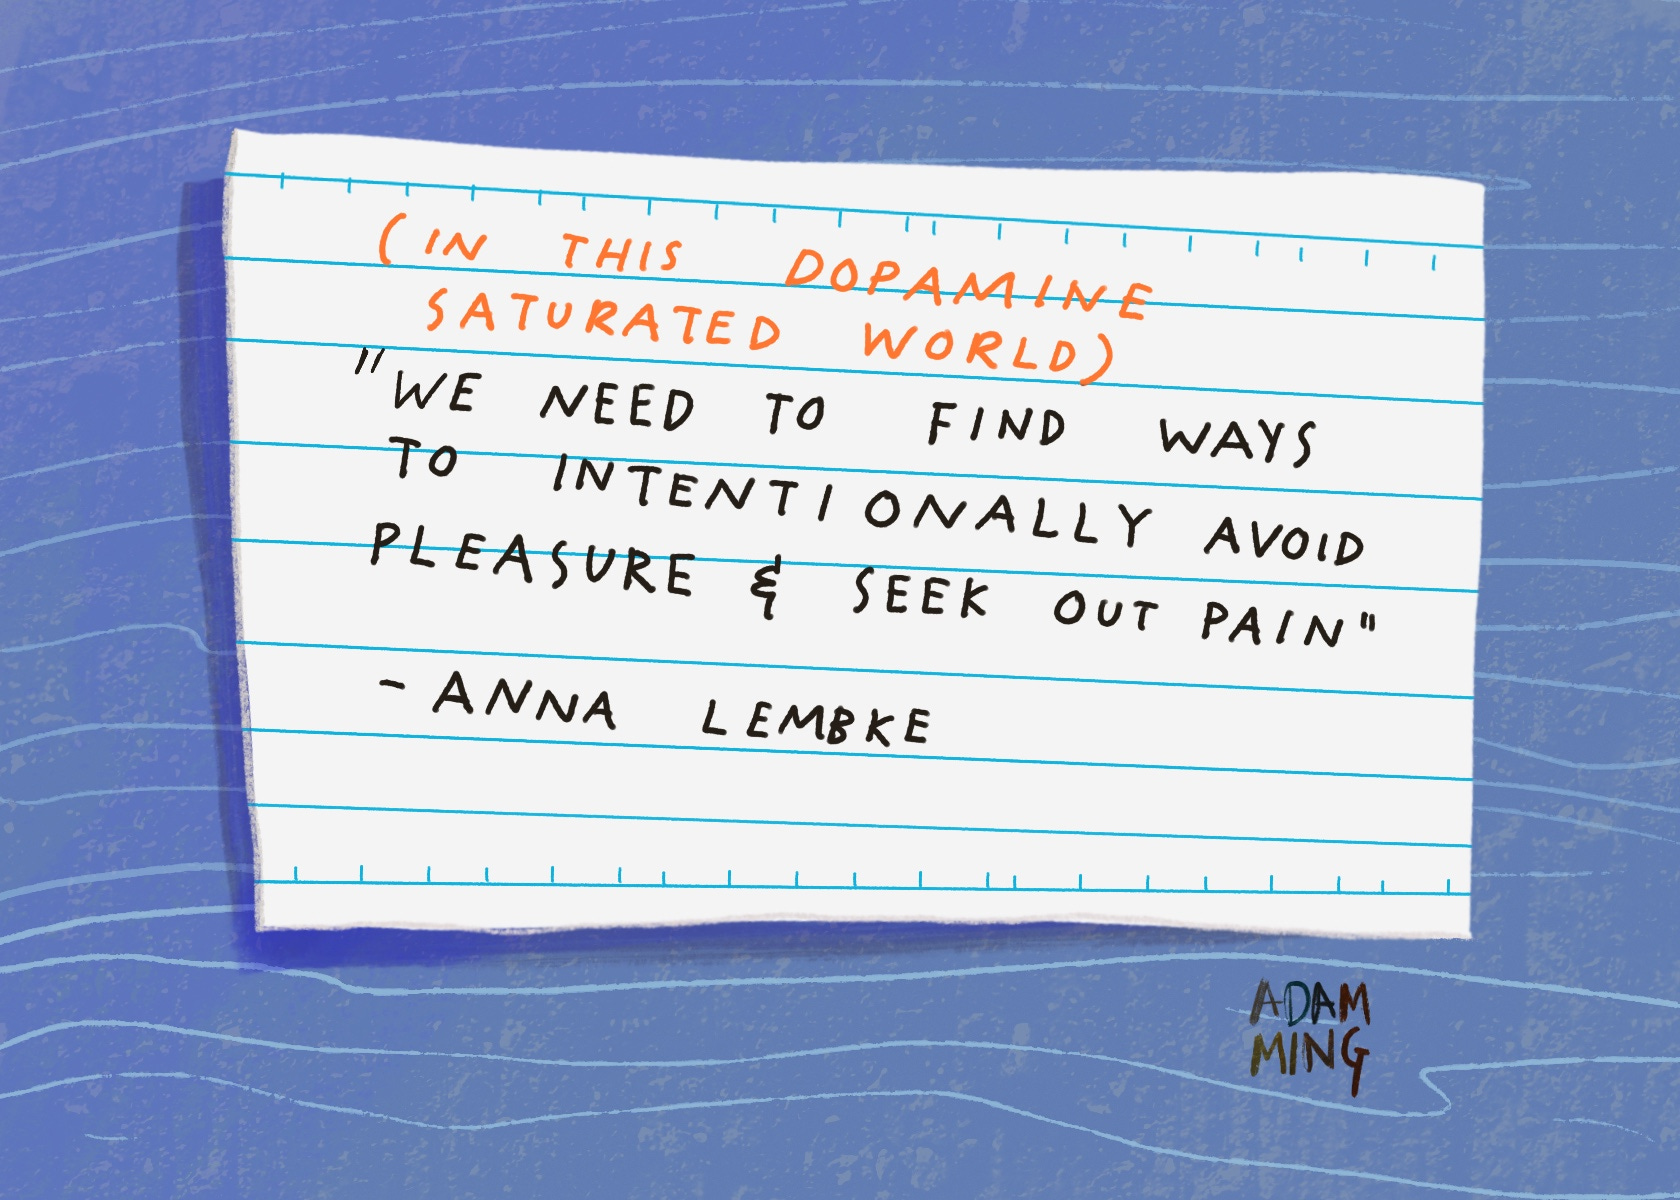 (IN THIS DOPAMINE
SATURATED WORLD)
"WE NEED TO FIND WAYS
TO INTENTIONALLY AVOID
PLEASURE & SEEK OUT PAIN"
- ANNA LEMBKE
ADAM
MING